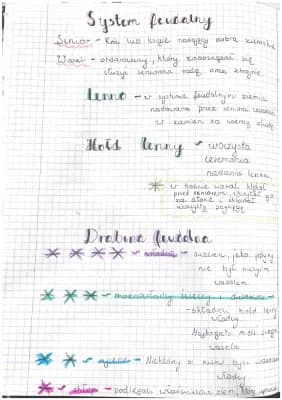 System feudalny
Senior - Król lub książę nadający dobra ziemskie
Wasal - obdarowany, który zobowiązał się
służyć seniorowi radą oraz zbrojnie.
Lenno - w systemie feudalnym ziemia
nadawana przez seniora
w zamian za wierną służbę.
Hołd lenny - uroczysta
ceremonia
nadania lenna.
w trakcie wasal klękał
przed seniorem,
za dłonie i składał
uroczystą przysięgę
Drabina feudalna
suzeren, jako jedyny
nie był niczyim
wasalem
- składali hołd lenny
władcy
wasala
rycerze - Niektórzy z nich byli wasalami
władcy
chłopi - podlegali właścicielom ziem,